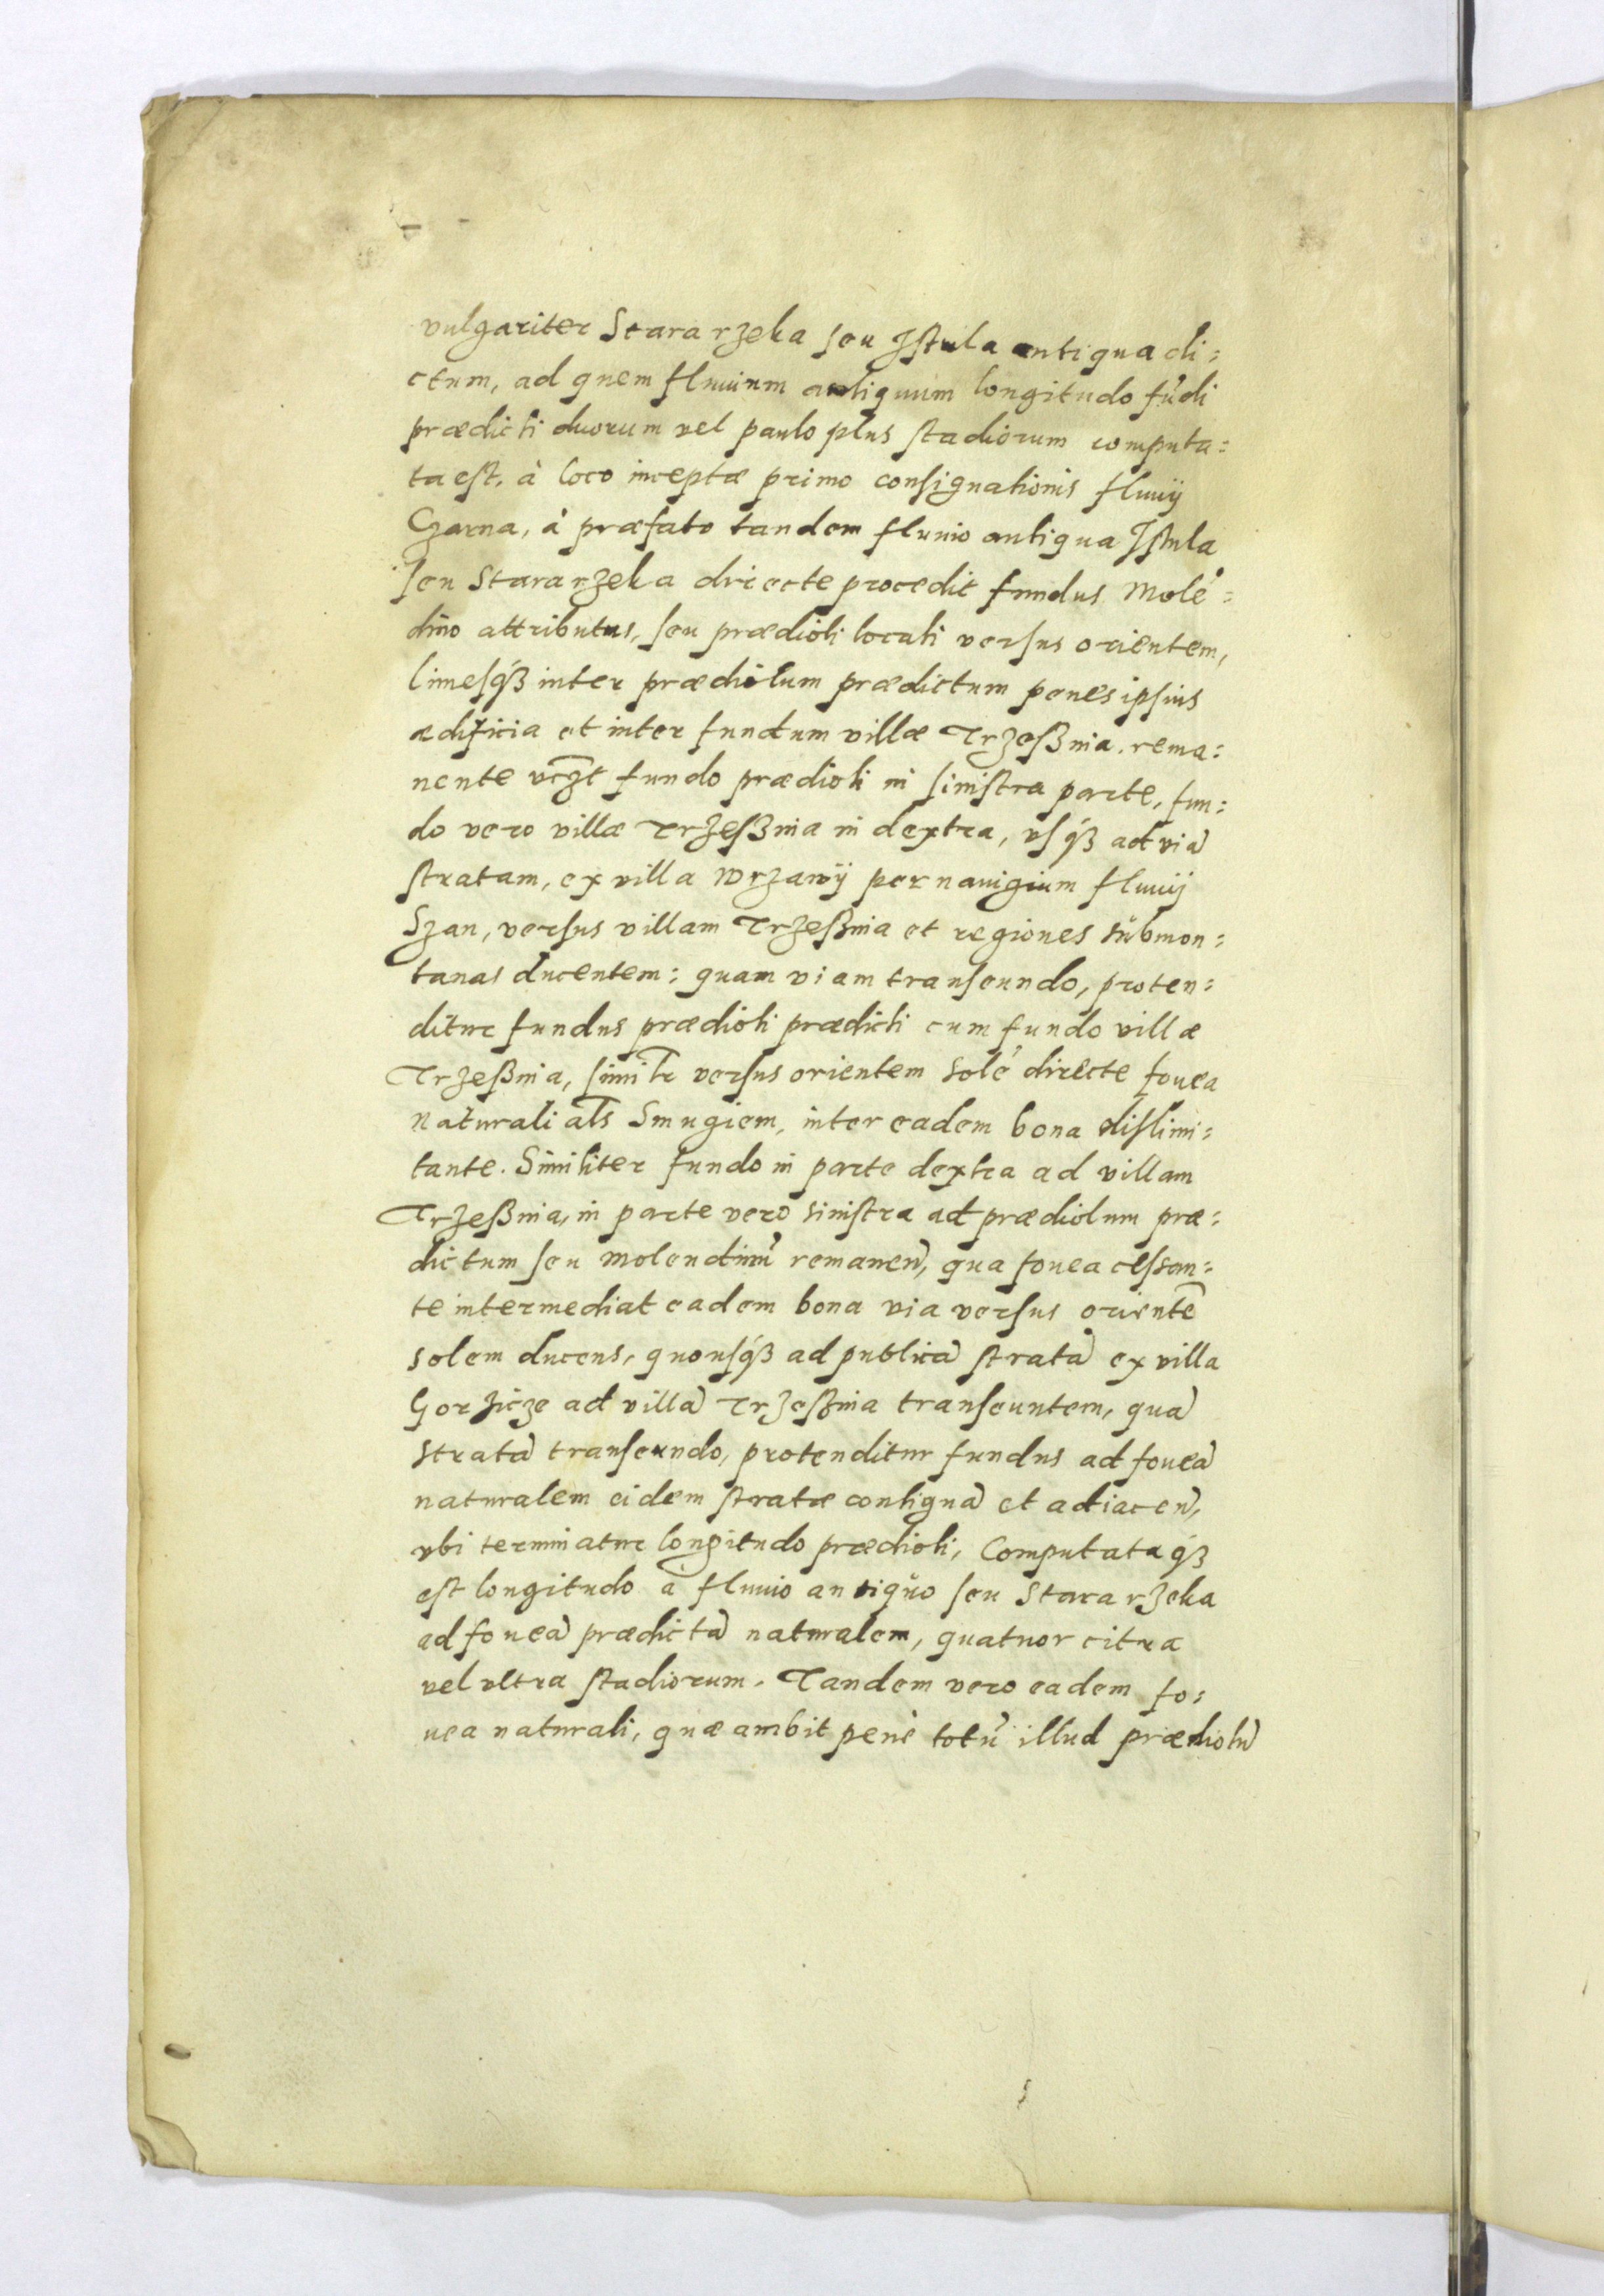 vulgariter Stara rzeka seu Istula antiqua di:
ctum, ad quem fluuium antiquum longitudo fūdi
prædicti duorum vel paulo plus stadiorum computa:
ta est, à loco inceptæ primo consignationis fluuij
Czarna, à præfato tandem fluuio antiqua Istula
seu Stara rzeka directe procedit fundus Molē:
dino attributus, seu prædioli locati versus orientem,
limesq́ʒ inter prædiolum prædictum penes ipsius
ædificia et inter fundum villæ Trzeßnia. rema:
nente fundo prædioli in sinistra parte, fun:
do vero villæ Trzeßnia in dextra, vsq́ʒ ad viā
stratam, ex villa Wrzawÿ per nauigium fluuij
Szan, versus villam Trzeßnia et regiones submon:
tanas ducentem: quam viam transeundo, proten:
ditur fundus prædioli prædicti cum fundo villæ
Trzeßnia, similr versus orientem solē directe fouea
naturali als Smugiem, inter eadem bona dislimi:
tante. Similiter fundo in parte dextra ad villam
Trzeßnia, in parte vero sinistra ad prædiolum præ:
dictum seu molendinū remanen̄, qua fouea cessan:
te intermediat eadem bona via versus orientē
solem ducens, quousq́ʒ ad publicā stratā ex villa
Gorzicze ad villā Trzeßnia transeuntem, quā
stratā transeundo, protenditur fundus ad foueā
naturalem eidem stratæ contiguā et adiacen̄,
vbi terminatur longitudo prædioli, Computataq́ʒ
est longitudo à fluuio antiquo seu Stara rzeka
ad foueā prædictā naturalem, quatuor citra
vel vltra stadiorum. Tandem vero eadem fo:
uea naturali, quæ ambit penè totū illud prædiolū